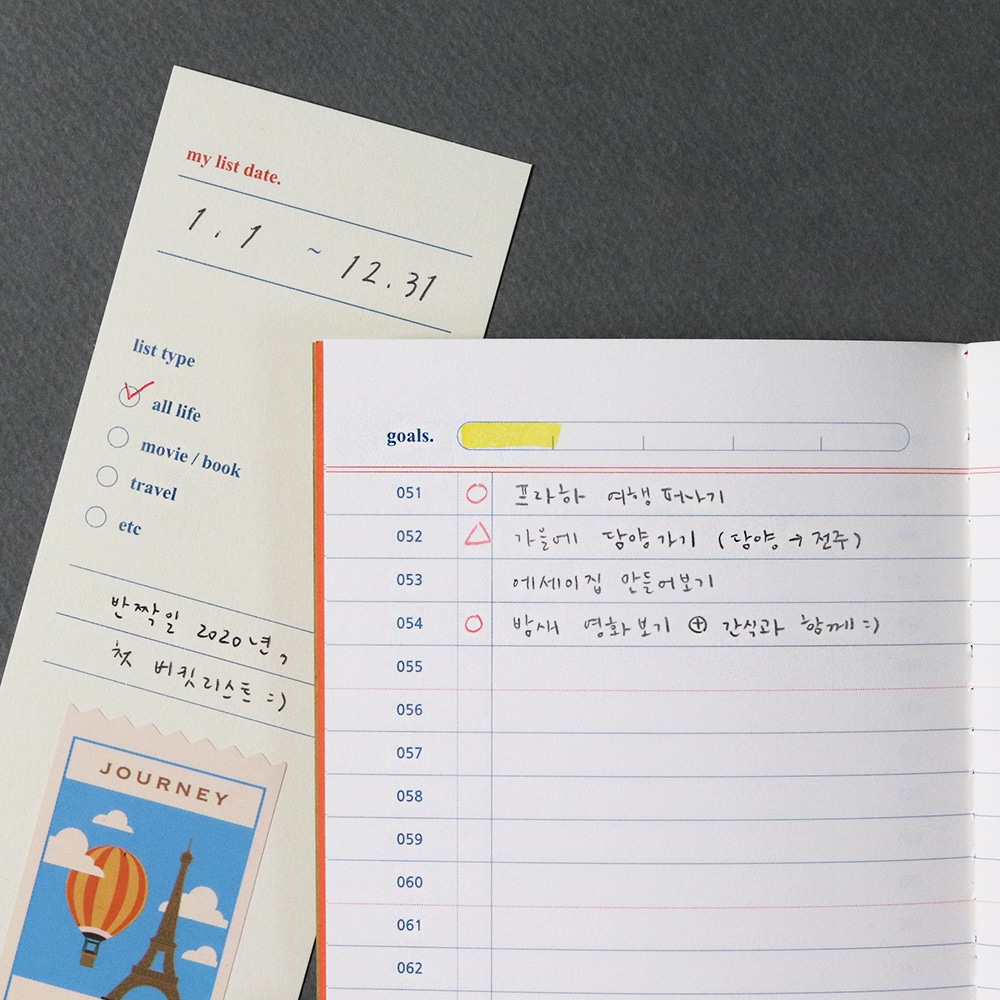 my list date.
1.1 ~ 12.31
list type
all life
movie / book
travel
etc
반짝일 2020년,
첫 버킷리스트 =)
JOURNEY
goals.
051 ○ 프라하 여행 떠나기
052 △ 가을에 담양가기 (담양 → 전주)
053 에세이집 만들어보기
054 ○ 밤새 영화보기 ⊕ 간식과 함께 =)
055
056
057
058
059
060
061
062